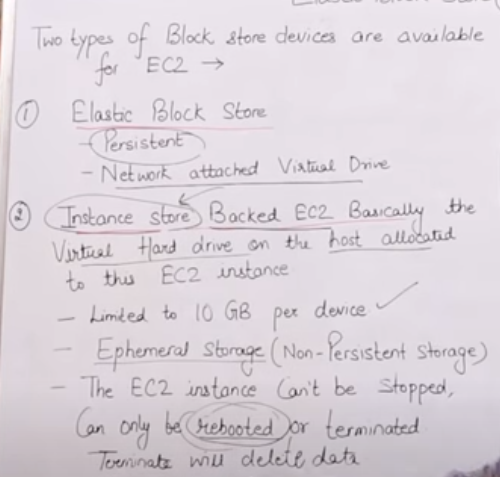 Two types of Block store devices are available
for EC2 →
① Elastic Block Store
- Persistent
- Network attached Virtual Drive
② Instance store Backed EC2 Basically the
Virtual Hard drive on the host allocated
to this EC2 instance
- Limited to 10 GB per device ✓
- Ephemeral Storage (Non-Persistent Storage)
- The EC2 instance Can't be Stopped,
Can only be rebooted or terminated
Terminate will delete data